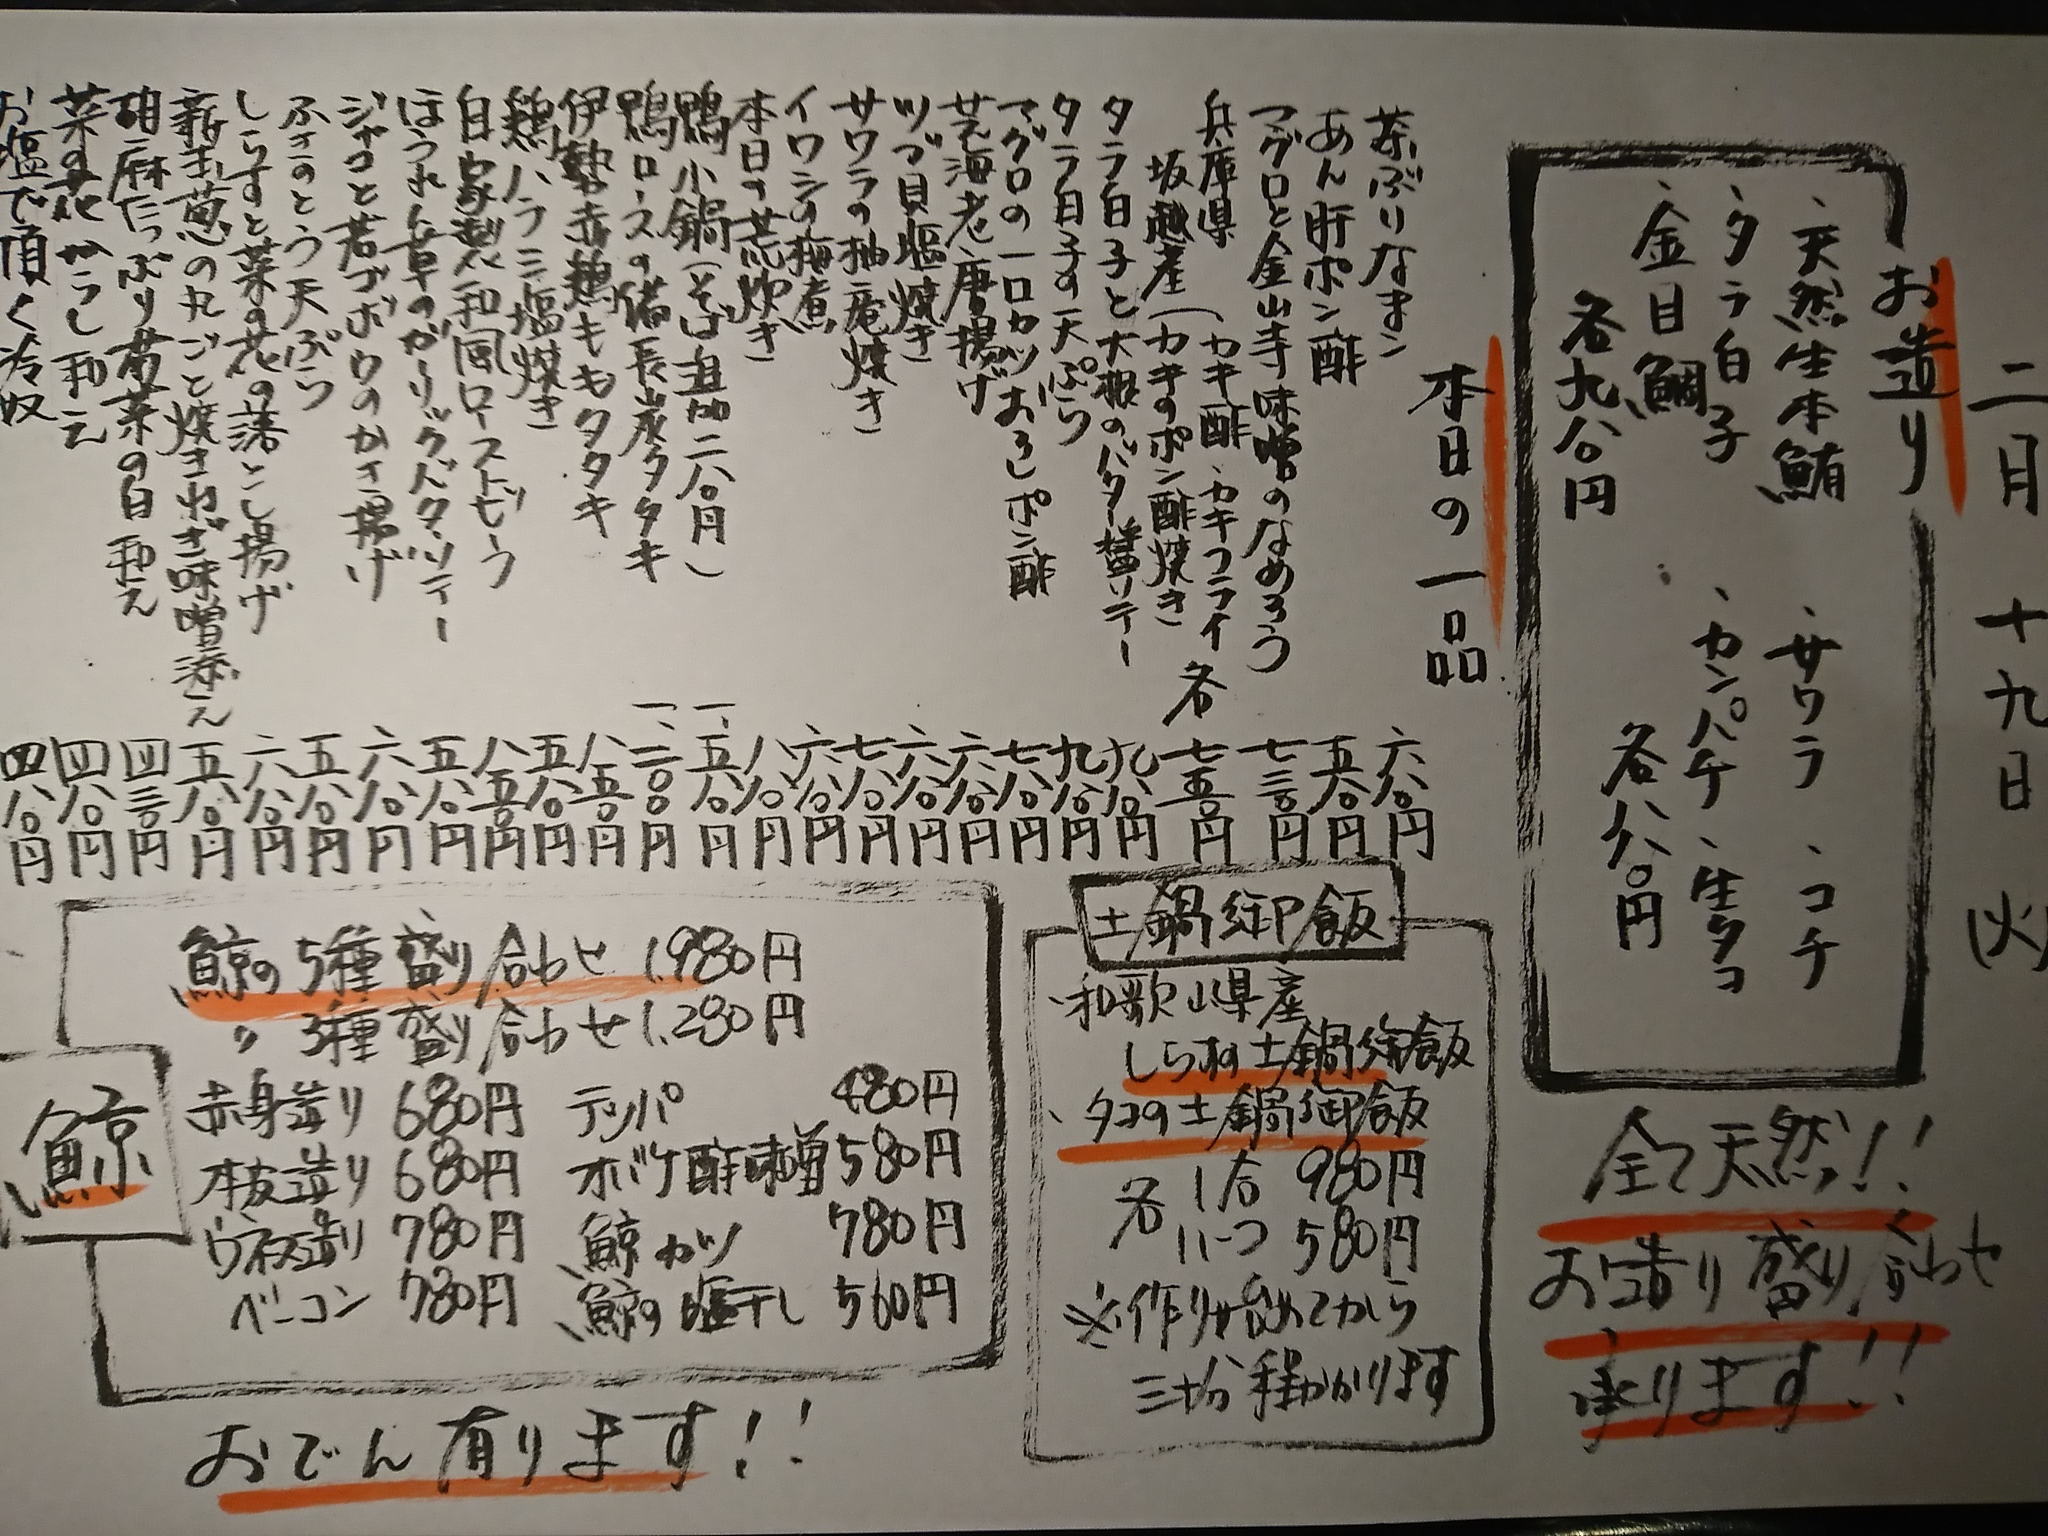 二月十九日(火)
お造り
、天然生本鮪
、タラ白子
、金目鯛
各九八〇円
、サワラ 、コチ
、カンパチ 、生タコ
各八八〇円
全て天然!!
お造り盛り合わせ
承ります!!
本日の一品
茶ぶりなまこ 六八〇円
あん肝ポン酢 五八〇円
マグロと金山寺味噌のなめろう 七三〇円
兵庫県
坂越産(カキ酢、カキフライ
カキのポン酢焼き 各 七五〇円
タラ白子と大根のバター醤ソテー 九八〇円
タラ白子の天ぷら 九八〇円
マグロの一口カツおろしポン酢 七八〇円
芝海老唐揚げ 六八〇円
ツブ貝塩焼き 六八〇円
サワラの柚庵焼き 七八〇円
イワシの梅煮 六八〇円
本日の荒炊き 八八〇円
鴨小鍋(そば追加二八〇円) 一、五八〇円
鴨ロースの備長炭タタキ 一、二〇〇円
伊勢赤鶏ももタタキ 八五〇円
鶏ハラミ塩焼き 五八〇円
自家製和風ローストビーフ 八五〇円
ほうれん草のガーリックバターソテー 五八〇円
ジャコと若ゴボウのかき揚げ 六八〇円
ふきのとう天ぷら 五八〇円
しらすと菜の花の落とし揚げ 六八〇円
新玉葱の丸ごと焼きねぎ味噌添え 五八〇円
胡麻たっぷり菊菜の白和え 四三〇円
菜の花からし和え 四八〇円
お塩で頂く冷奴 四八〇円
土鍋御飯
、和歌山県産
しらすの土鍋御飯
、タコの土鍋御飯
各 1合 980円
ハーフ 580円
※作り始めてから
三十分程かかります
鯨
鯨の5種盛り合わせ 1,980円
〃 3種盛り合わせ 1,280円
赤身造り 680円 テッパ 480円
本皮造り 680円 オバケ酢味噌 580円
ウネス造り 780円 鯨カツ 780円
ベーコン 780円 鯨の塩干し 560円
おでん有ります!!